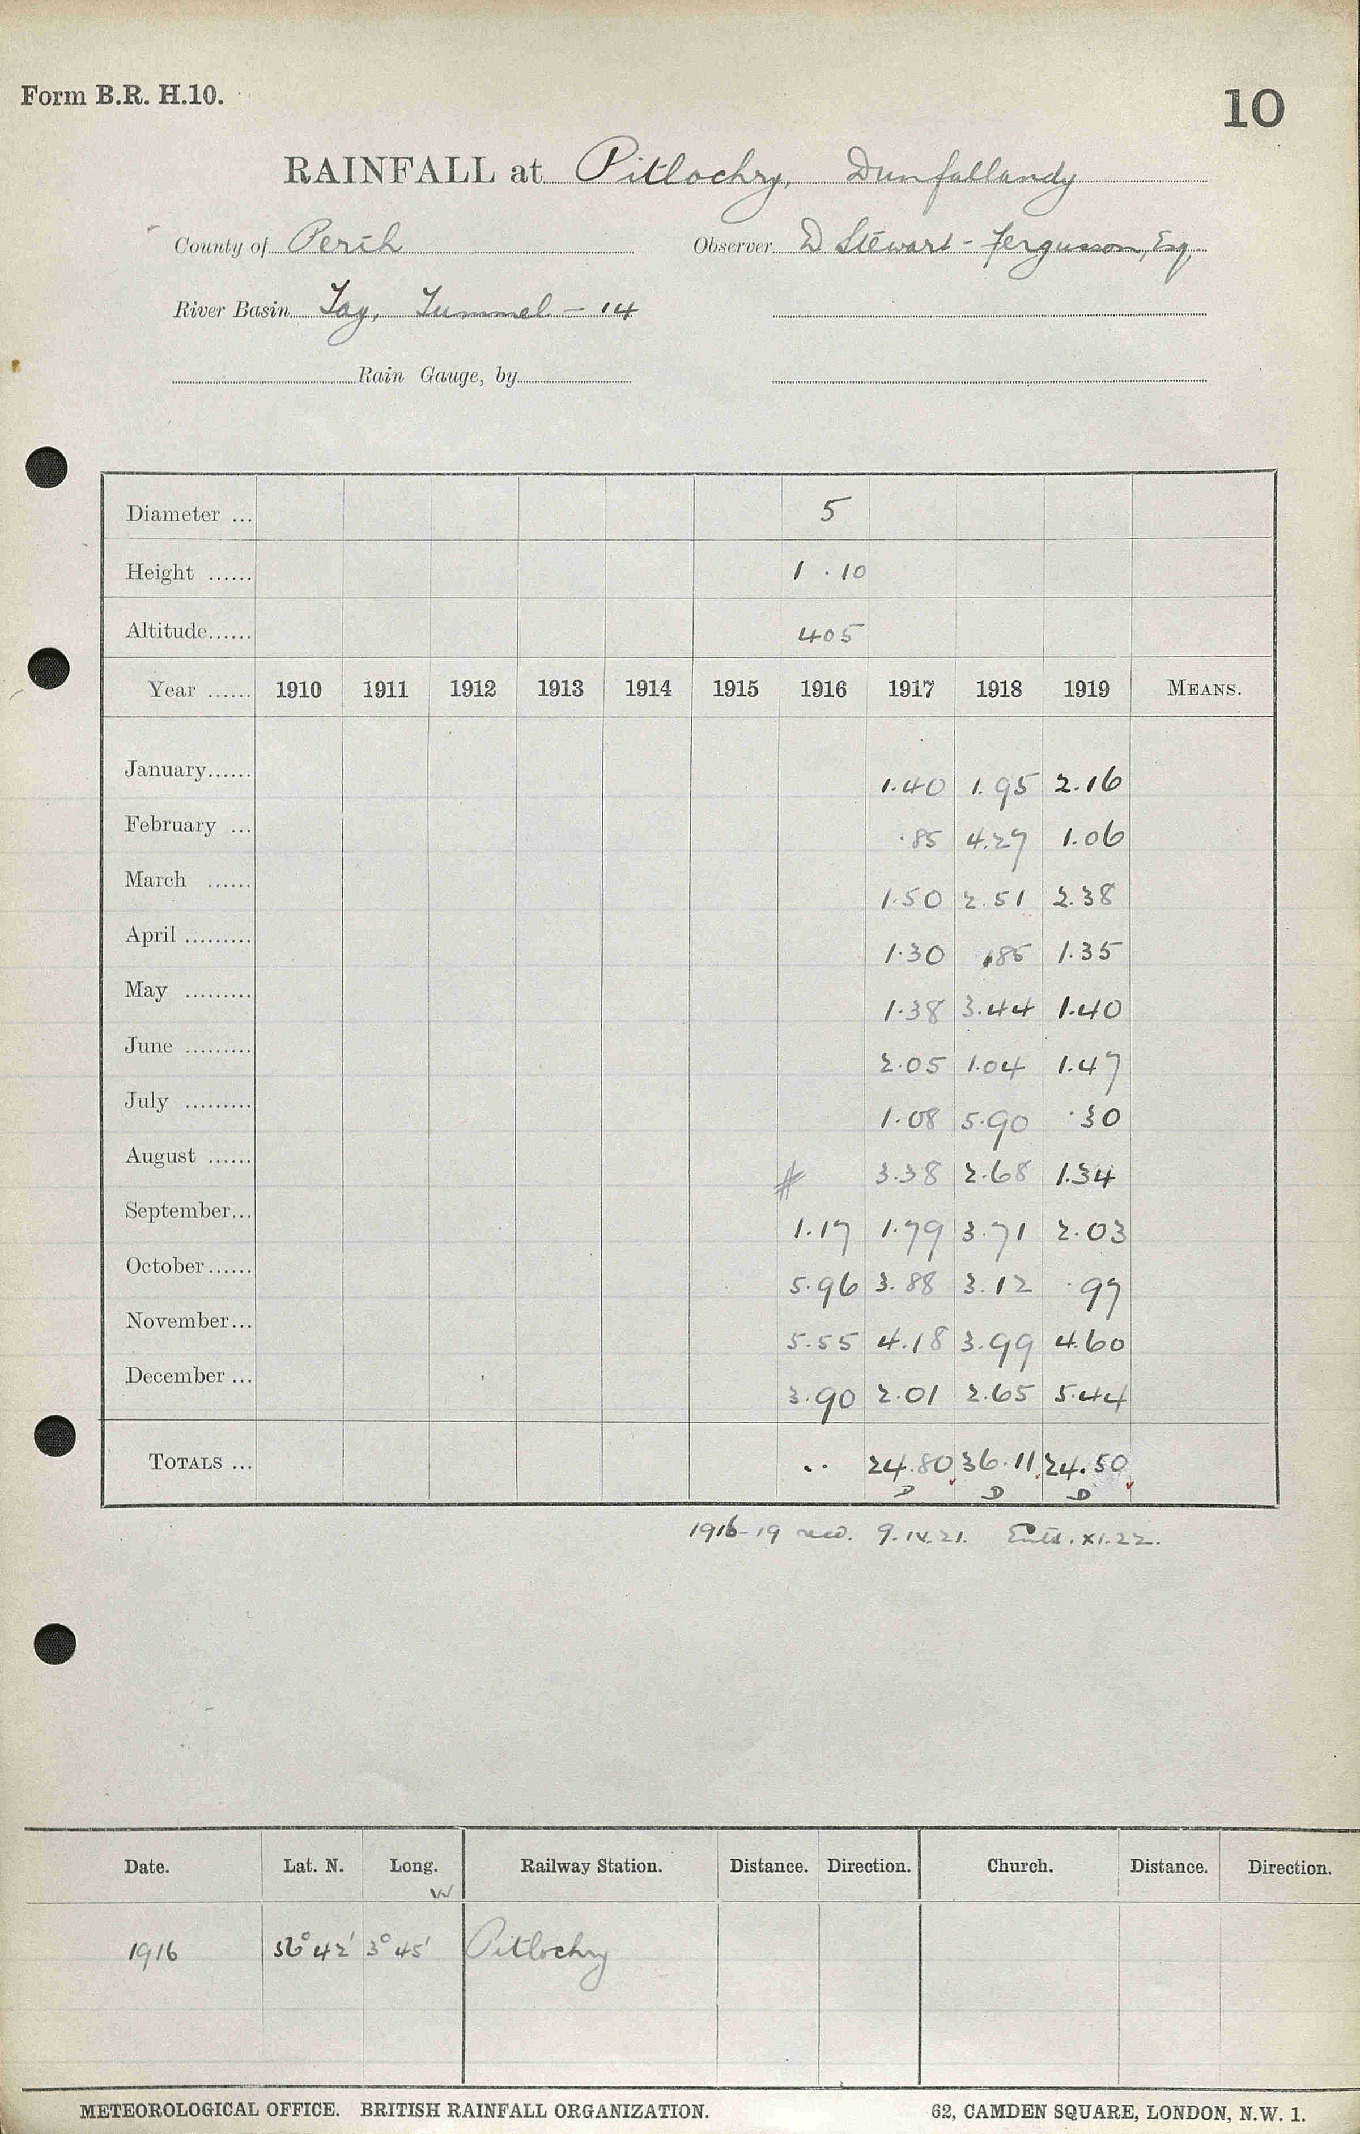 Form B.R. H.10.
10
RAINFALL at Pitlochry, Dunfallandy
County of Perth Observer D Stewart-Fergusson, Esq,
River Basin Tay, Tummel - 14
Rain Gauge, by
Diameter ... 5
Height ...... 1 . 10
Altitude...... 405
Year ...... 1910 1911 1912 1913 1914 1915 1916 1917 1918 1919 MEANS.
January...... 1.40 1.95 2.16
February ... .85 4.27 1.06
March ...... 1.50 2.51 2.38
April ......... 1.30 .85 1.35
May ......... 1.38 3.44 1.40
June ......... 2.05 1.04 1.47
July ......... 1.08 5.90 .30
August ...... # 3.38 2.68 1.34
September... 1.17 1.79 3.71 2.03
October...... 5.96 3.88 3.12 .97
November... 5.55 4.18 3.99 4.60
December ... 3.90 2.01 2.65 5.44
TOTALS ... .. 24.80 36.11 24.50
D D D
1916-19 recd. 9.IV.21. Entd. XI.22.
Date. Lat. N. Long. Railway Station. Distance. Direction. Church. Distance. Direction.
W
1916 56° 42' 3° 45' Pitlochry
METEOROLOGICAL OFFICE. BRITISH RAINFALL ORGANIZATION. 62, CAMDEN SQUARE, LONDON, N.W. 1.